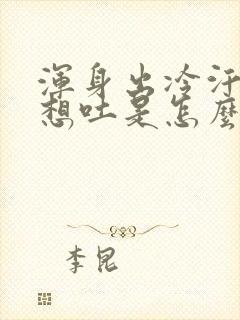 渾身出冷汗
想吐是怎麼
李昆